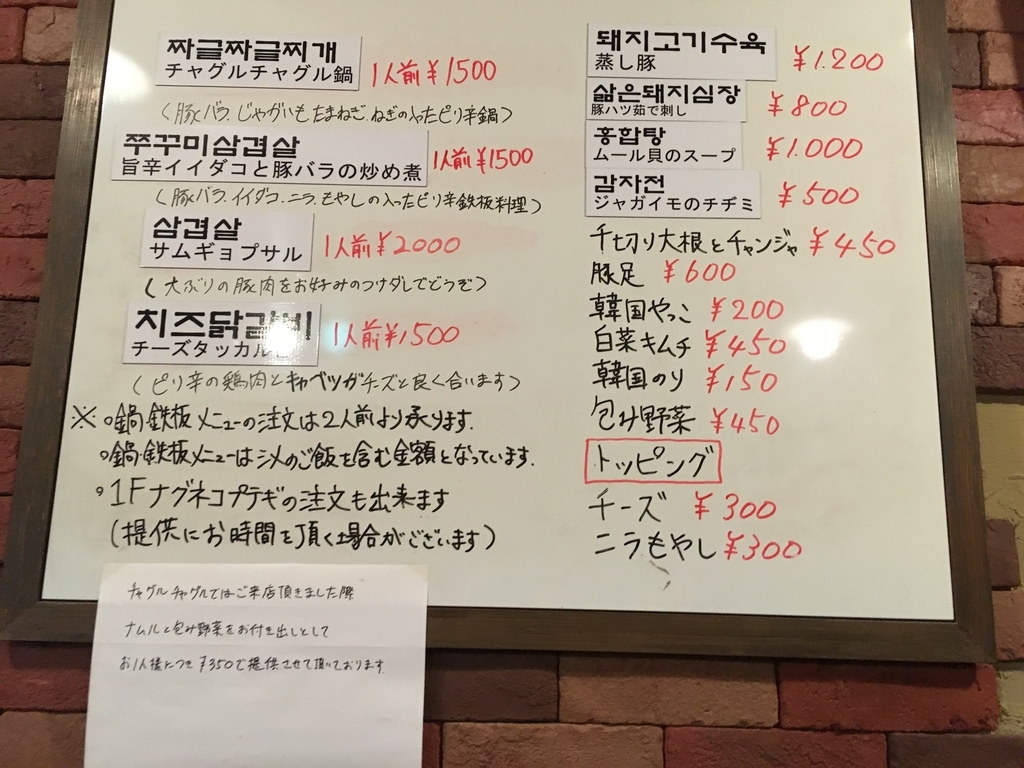 짜글짜글찌개
チャグルチャグル鍋 1人前¥1500
(豚バラ.じゃがいも たまねぎ.ねぎの入ったピリ辛鍋)
쭈꾸미삼겹살
旨辛イイダコと豚バラの炒め煮 1人前¥1500
(豚バラ.イイダコ.ニラ.もやしの入ったピリ辛鉄板料理)
삼겹살
サムギョプサル 1人前¥2000
(大ぶりの豚肉をお好みのつけダレでどうぞ)
치즈닭갈비
チーズタッカルビ 1人前¥1500
(ピリ辛の鶏肉とキャベツがチーズと良く合います)
※ 。鍋・鉄板メニューの注文は2人前より承ります.
。鍋・鉄板メニューはシメのご飯を含む金額となっています.
。1Fナグネコプテギの注文も出来ます
(提供にお時間を頂く場合がございます)
돼지고기수육
蒸し豚 ¥1.200
삶은돼지심장
豚ハツ茹で刺し ¥800
홍합탕
ムール貝のスープ ¥1.000
감자전
ジャガイモのチヂミ ¥500
千切り大根とチャンジャ ¥450
豚足 ¥600
韓国やっこ ¥200
白菜キムチ ¥450
韓国のり ¥150
包み野菜 ¥450
トッピング
チーズ ¥300
ニラもやし ¥300
チャグルチャグルではご来店頂きました際
ナムルと包み野菜をお付き出しとして
お1人様につき¥350で提供させて頂いております.